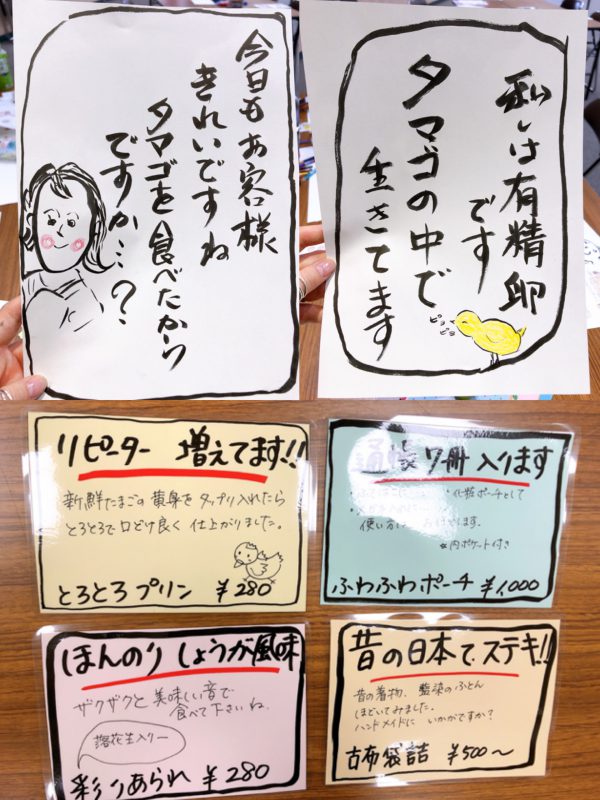 今日もお客様
きれいですね
タマゴを食べたから
ですか…?
私は有精卵
です
タマゴの中で
生きてます
ピヨ
ピヨ
リピーター 増えてます!!
新鮮たまごの黄身をタップリ入れたら
とろとろで口どけ良く仕上がりました。
とろとろプリン ¥280
通帳7冊入ります
・化粧ポーチとして
使い方
※内ポケット付き
ふわふわポーチ ¥1,000
ほんのりしょうが風味
ザクザクと美味しい音で
食べて下さいね
落花生入りー
彩りあられ ¥280
昔の日本で、ステキ!!
昔の着物、藍染のふとん
ほどいてみました。
ハンドメイドにいかがですか?
古布袋詰 ¥500〜